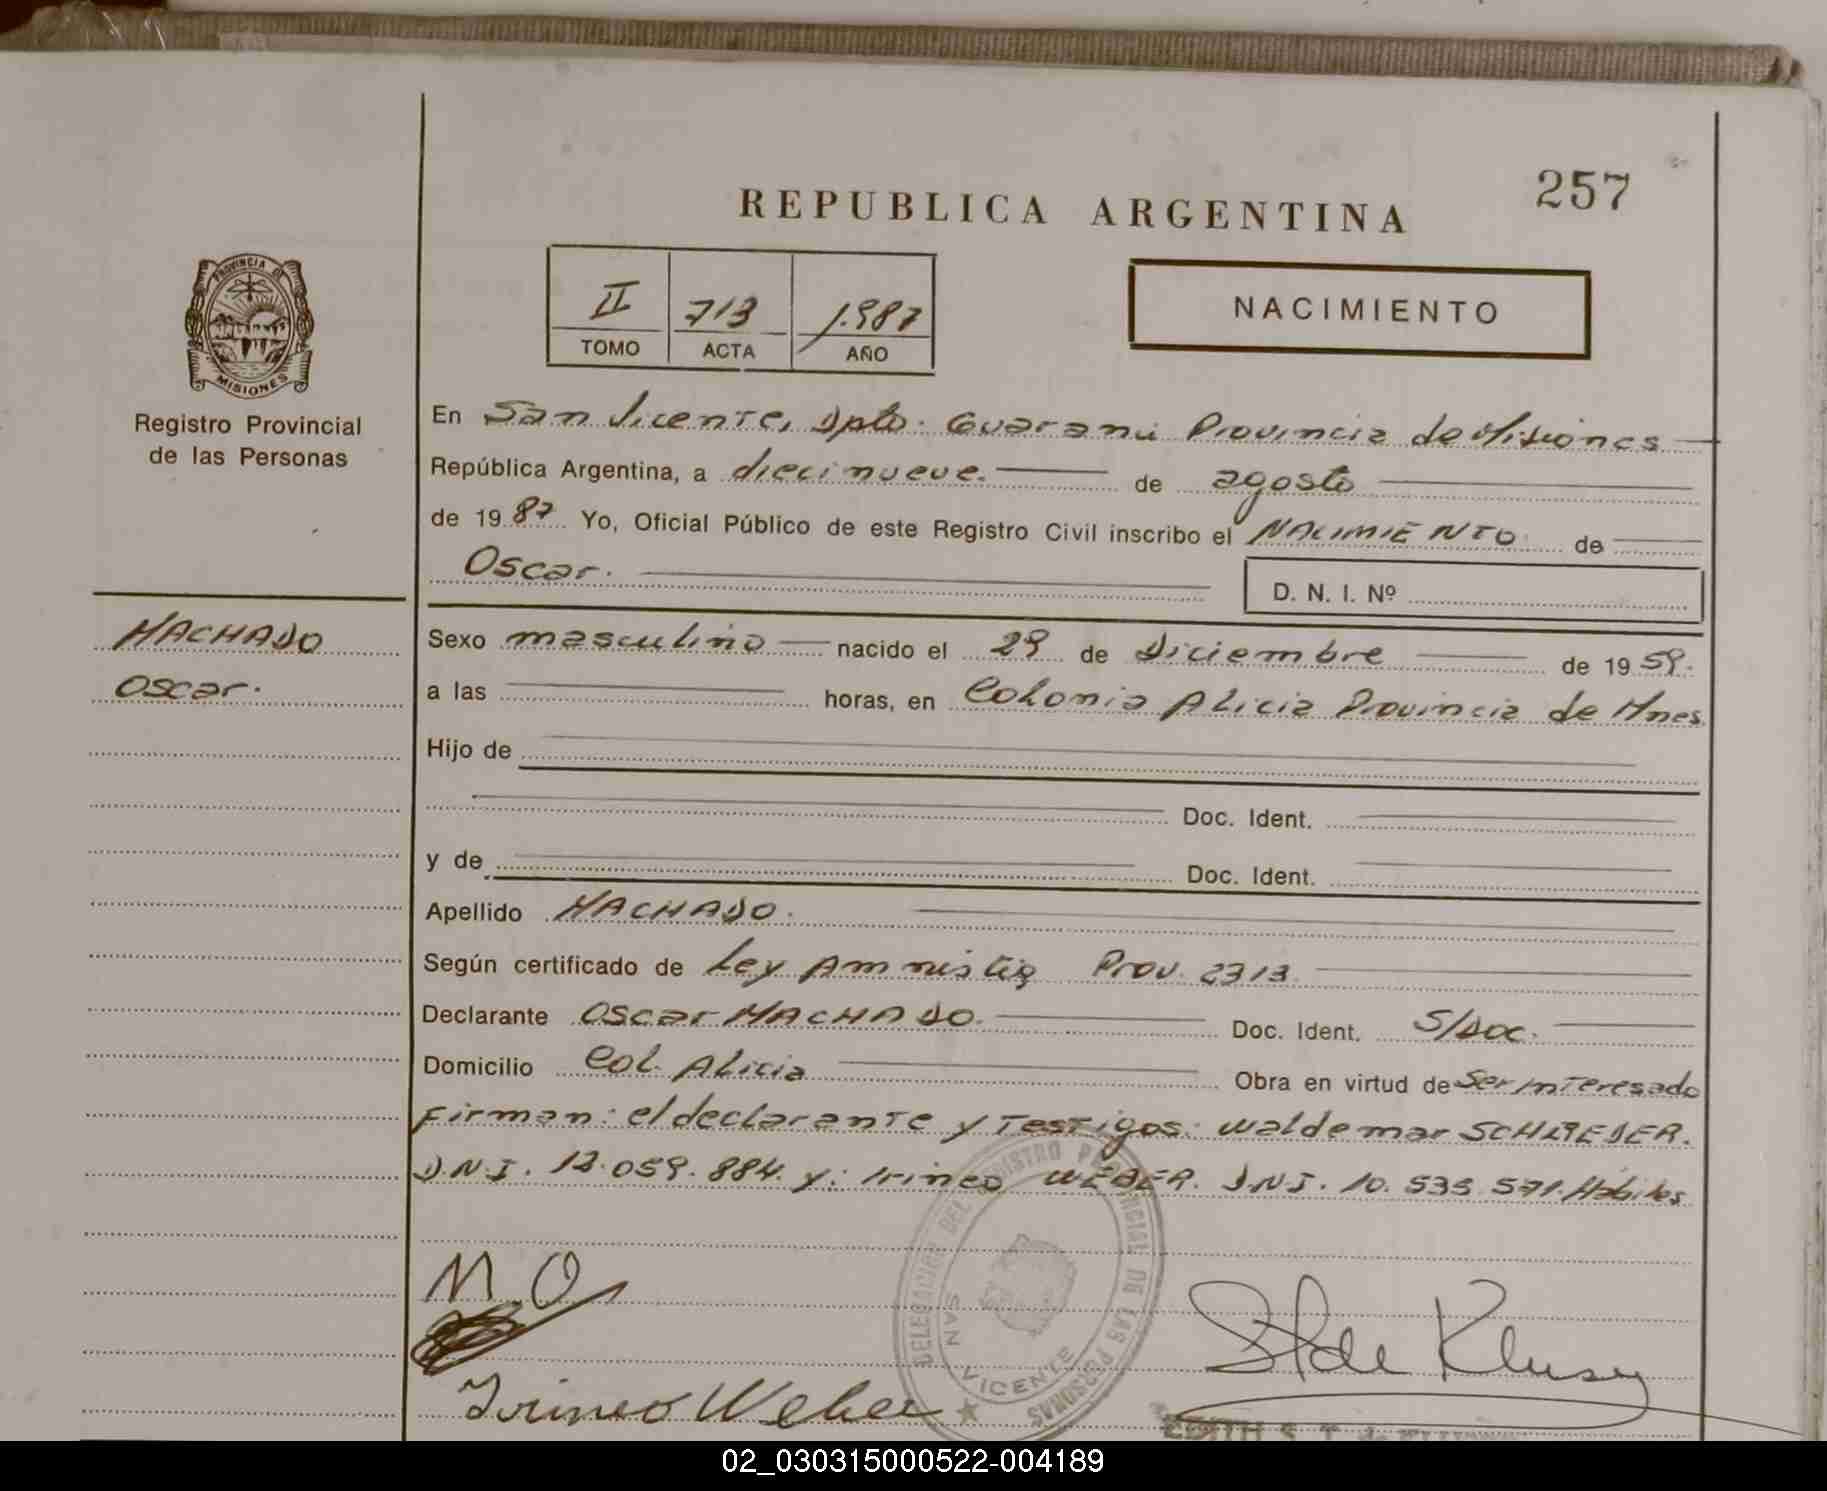 257
REPUBLICA ARGENTINA
II 713 1.987
TOMO ACTA AÑO
NACIMIENTO
PROVINCIA DE
MISIONES
Registro Provincial
de las Personas
En San Vicente, Dpto. Guarani Provincia de Misiones
República Argentina, a diecinueve. de agosto
de 1987 Yo, Oficial Público de este Registro Civil inscribo el NACIMIENTO de
Oscar.
D. N. I. Nº
MACHADO
Oscar.
Sexo masculino nacido el 29 de Diciembre de 1959.
a las horas, en Colonia Alicia Provincia de Mnes
Hijo de
Doc. Ident.
y de Doc. Ident.
Apellido MACHADO.
Según certificado de Ley Amnistia Prov. 2313
Declarante Oscar MACHADO. Doc. Ident. S/Doc.
Domicilio Col. Alicia Obra en virtud de Ser interesado
Firman: el declarante y Testigos: Waldemar
D.N.I. 12.059.884. y: Irineo WEBER. D.N.I. 10.535.571. Hábiles
M.O
Irineo Weber
DELEGACION DEL REGISTRO PROVINCIAL DE LAS PERSONAS
SAN VICENTE
02_030315000522-004189